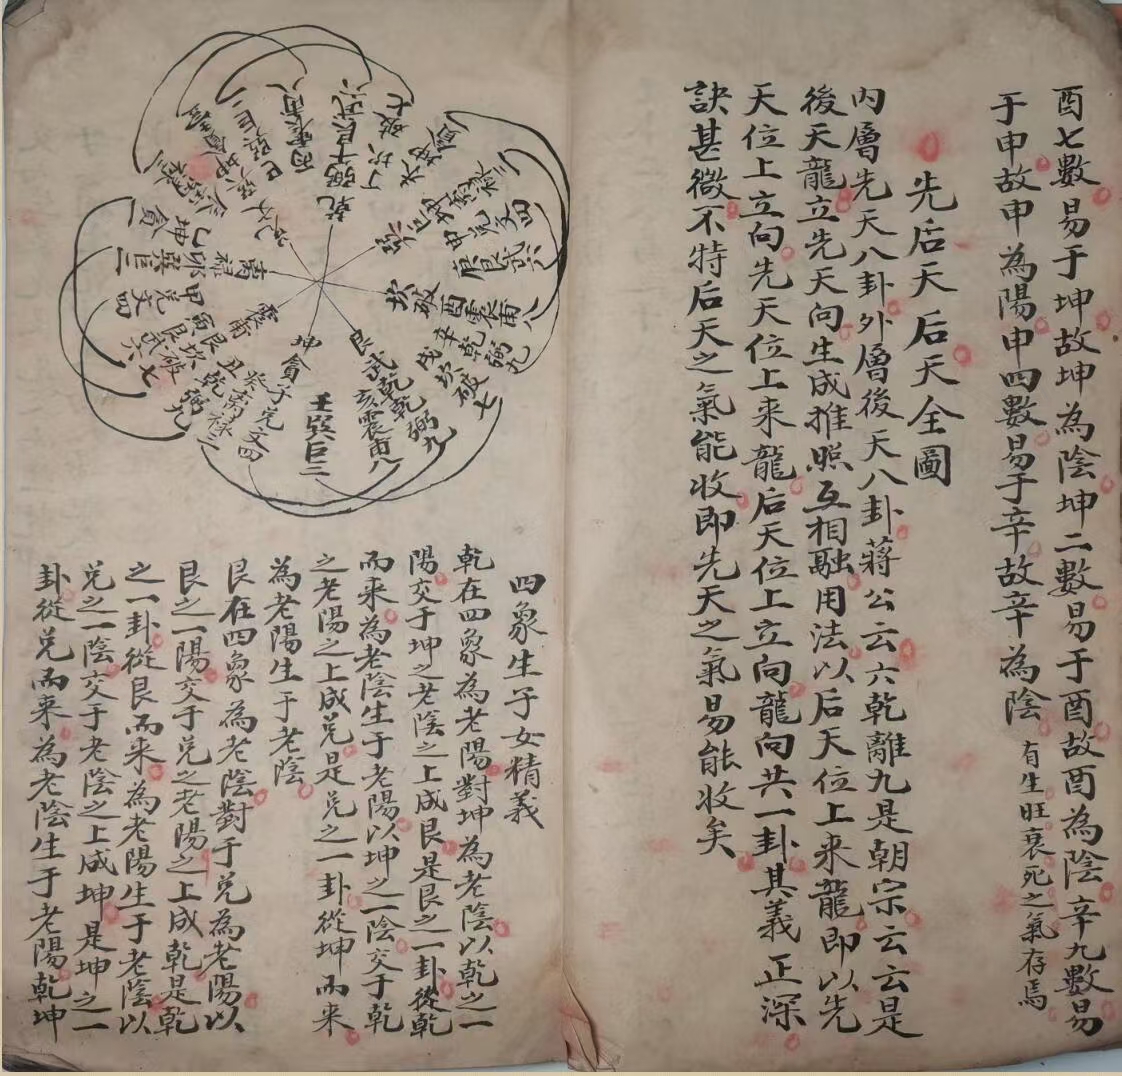 酉七數易于坤故坤為陰坤二數易于酉故酉為陰辛九數易
于申故申為陽申四數易于辛故辛為陰有生旺衰死之氣存焉
先后天后天全圖
内層先天八卦外層後天八卦蔣公云六乾離九是朝宗云云是
後天龍立先天向生成推照互相融用法以后天位上来龍即以先
天位上立向先天位上来龍后天位上立向龍向共一卦其義正深
訣甚微不特后天之氣能收即先天之氣易能收矣
乾
坎破
艮武
坤貪
震甫
酉震甫八
辛乾弼九
戌坎破七
乾乾弼九
亥震甫八
壬巽巨二
子兌文四
癸离禄三
丑乾弼九
坎破七
艮武六
甲兌文四
卯巽巨二
离禄
四象生子女精義
乾在四象為老陽對坤為老陰以乾之一
陽交于坤之老陰之上成艮是艮之一卦從乾
而来為老陰生于老陽以坤之一陰交于乾
之老陽之上成兌是兌之一卦從坤而来
為老陽生于老陰
艮在四象為老陰對于兌為老陽以
艮之一陽交于兌之老陽之上成乾是乾
之一卦從艮而来為老陽生于老陰以
兌之一陰交于老陰之上成坤是坤之一
卦從兌而来為老陰生于老陽乾坤